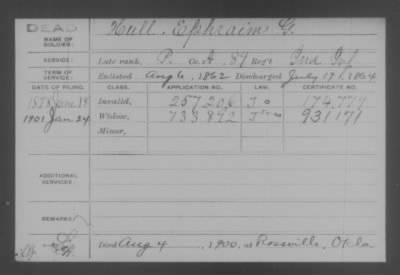 DEAD
NAME OF SOLDIER: Hull, Ephraim G.
SERVICE: Late rank, P. Co. A, 89 Reg't Ind Inf
TERM OF SERVICE: Enlisted Aug 6, 1862 Discharged July 19, 1864
DATE OF FILING. CLASS. APPLICATION NO. LAW. CERTIFICATE NO.
1878 June 18 Invalid, 257206 174,779
1901 Jan 24 Widow, 733,892 931171
Minor,
ADDITIONAL SERVICES:
REMARKS:
Died Aug 4, 1900, at Rossville, Okla